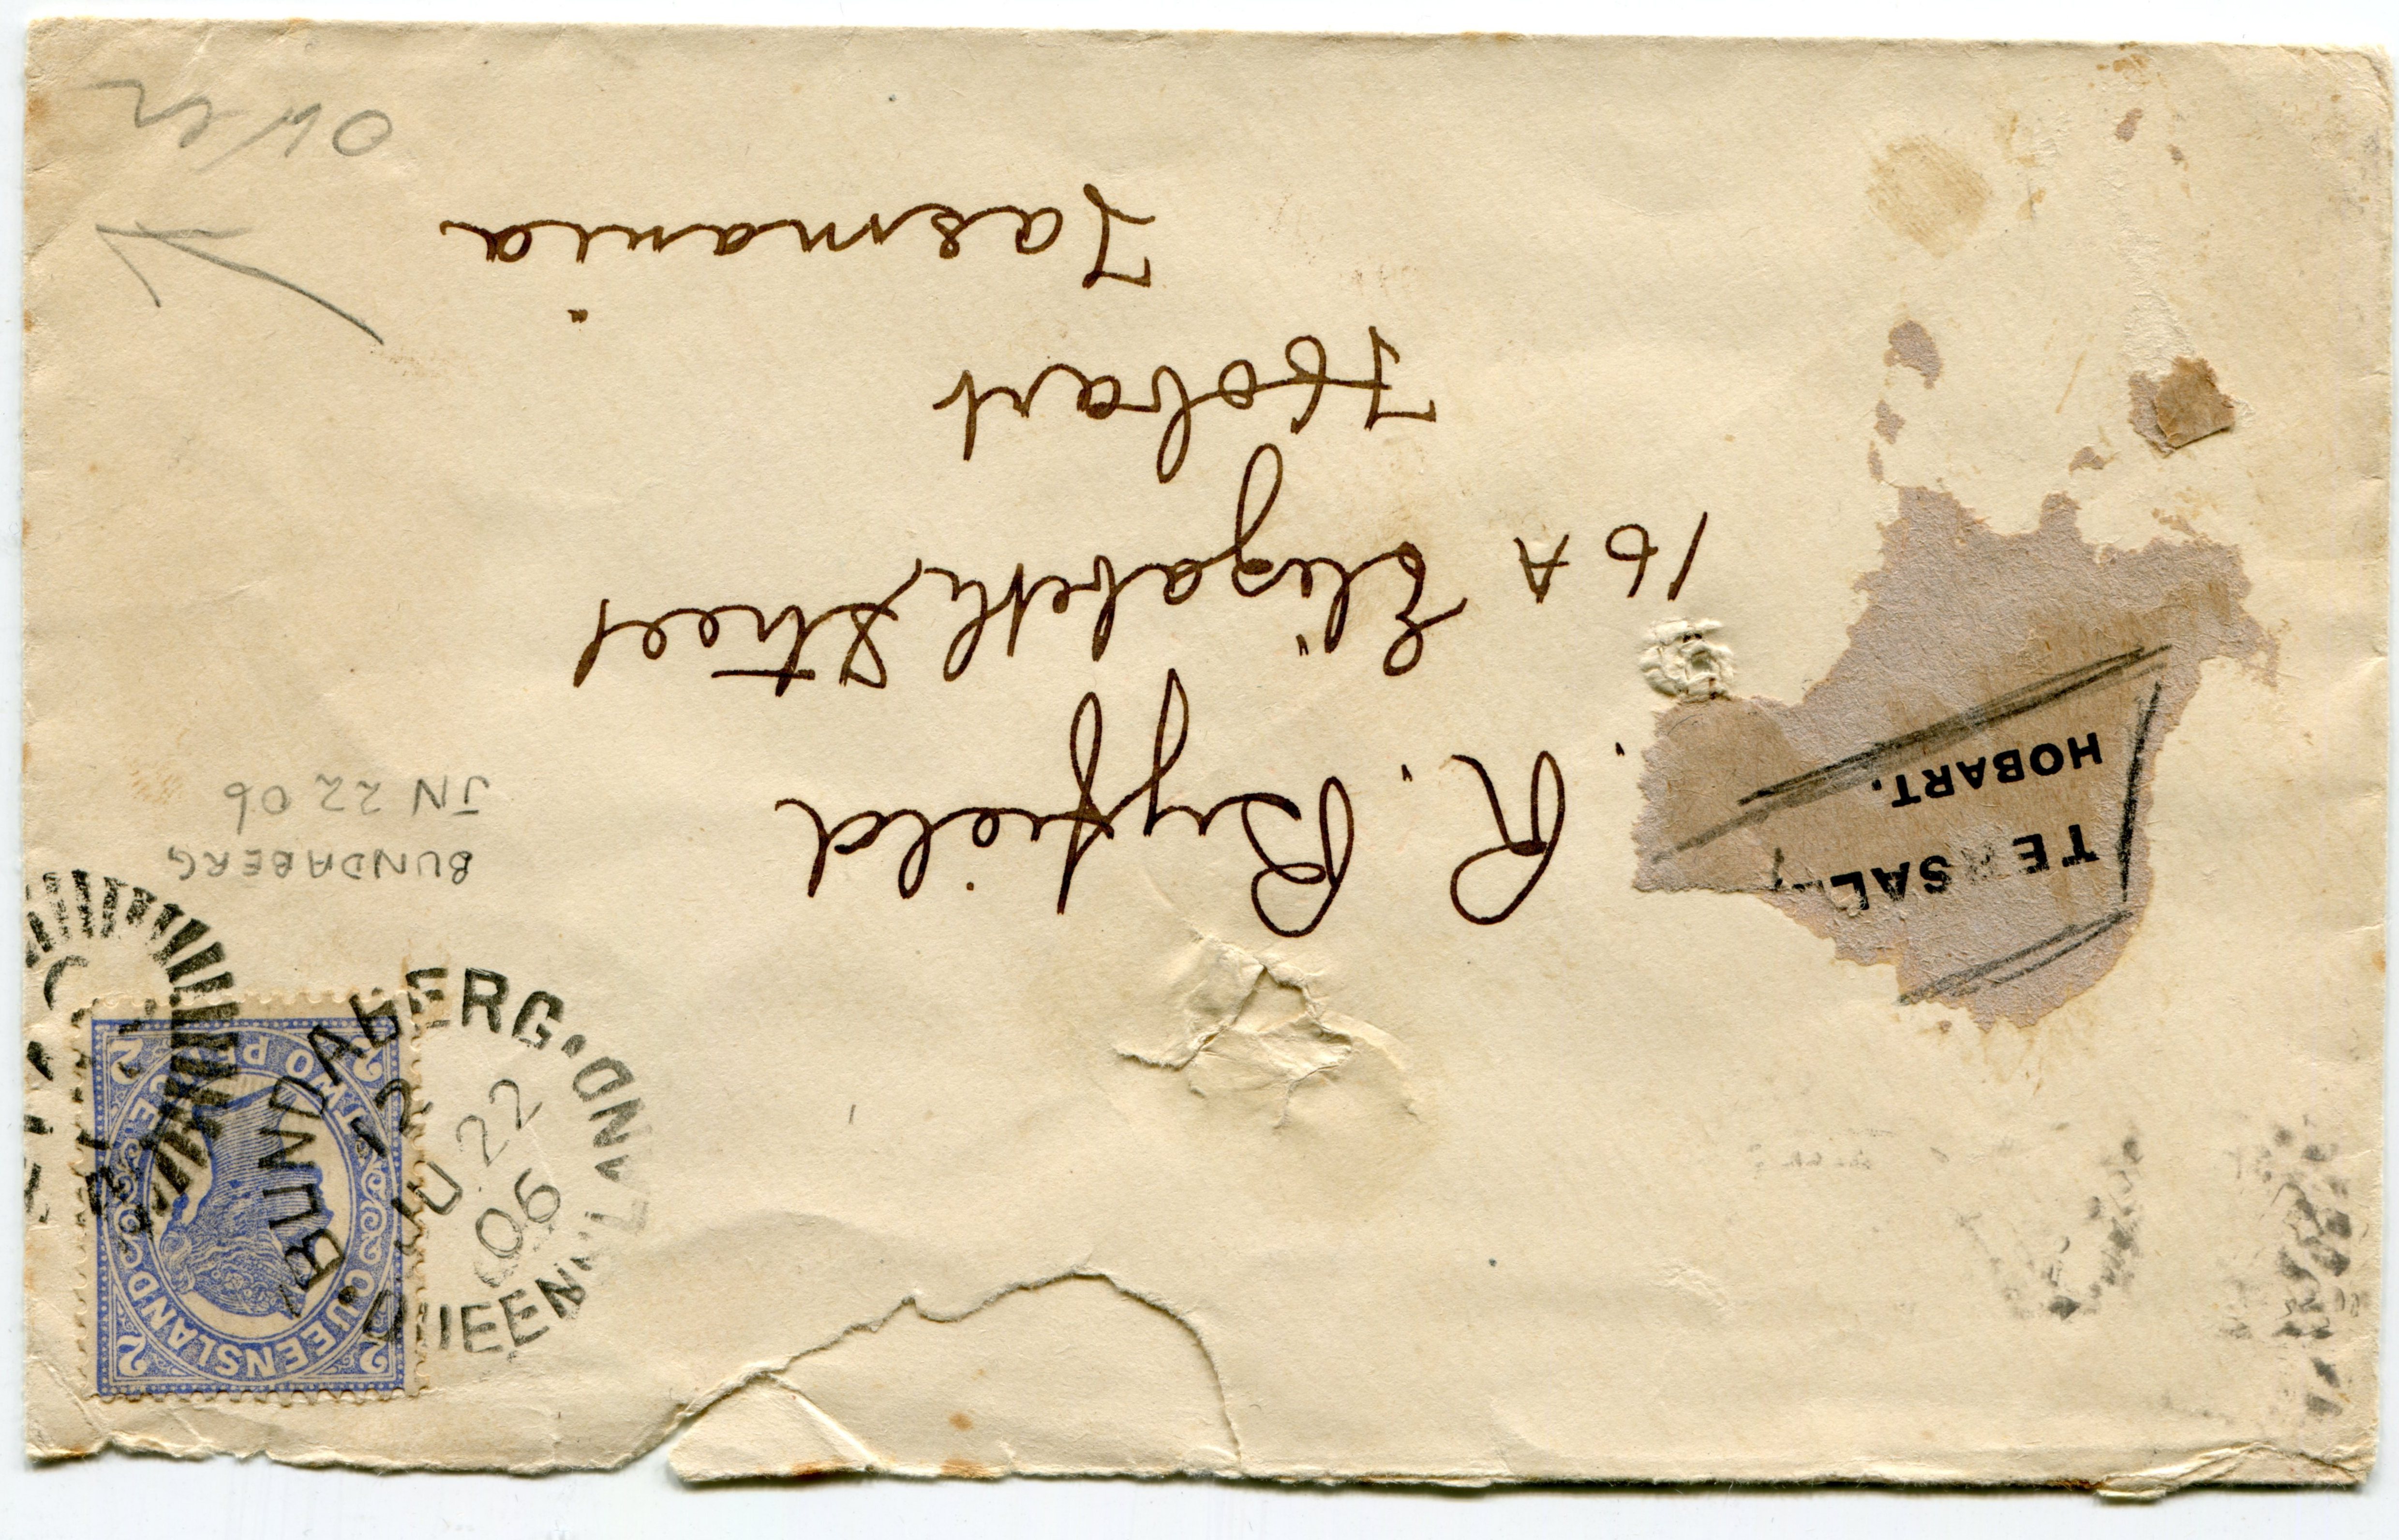 R. Byfield
16 A Elizabeth Street
Hobart
Tasmania
over
BUNDABERG
JN 22 06
BUNDABERG
12
JU 22
06
QUEENSLAND
QUEENSLAND
TWO PENCE
2 2
2 2
HOBART.